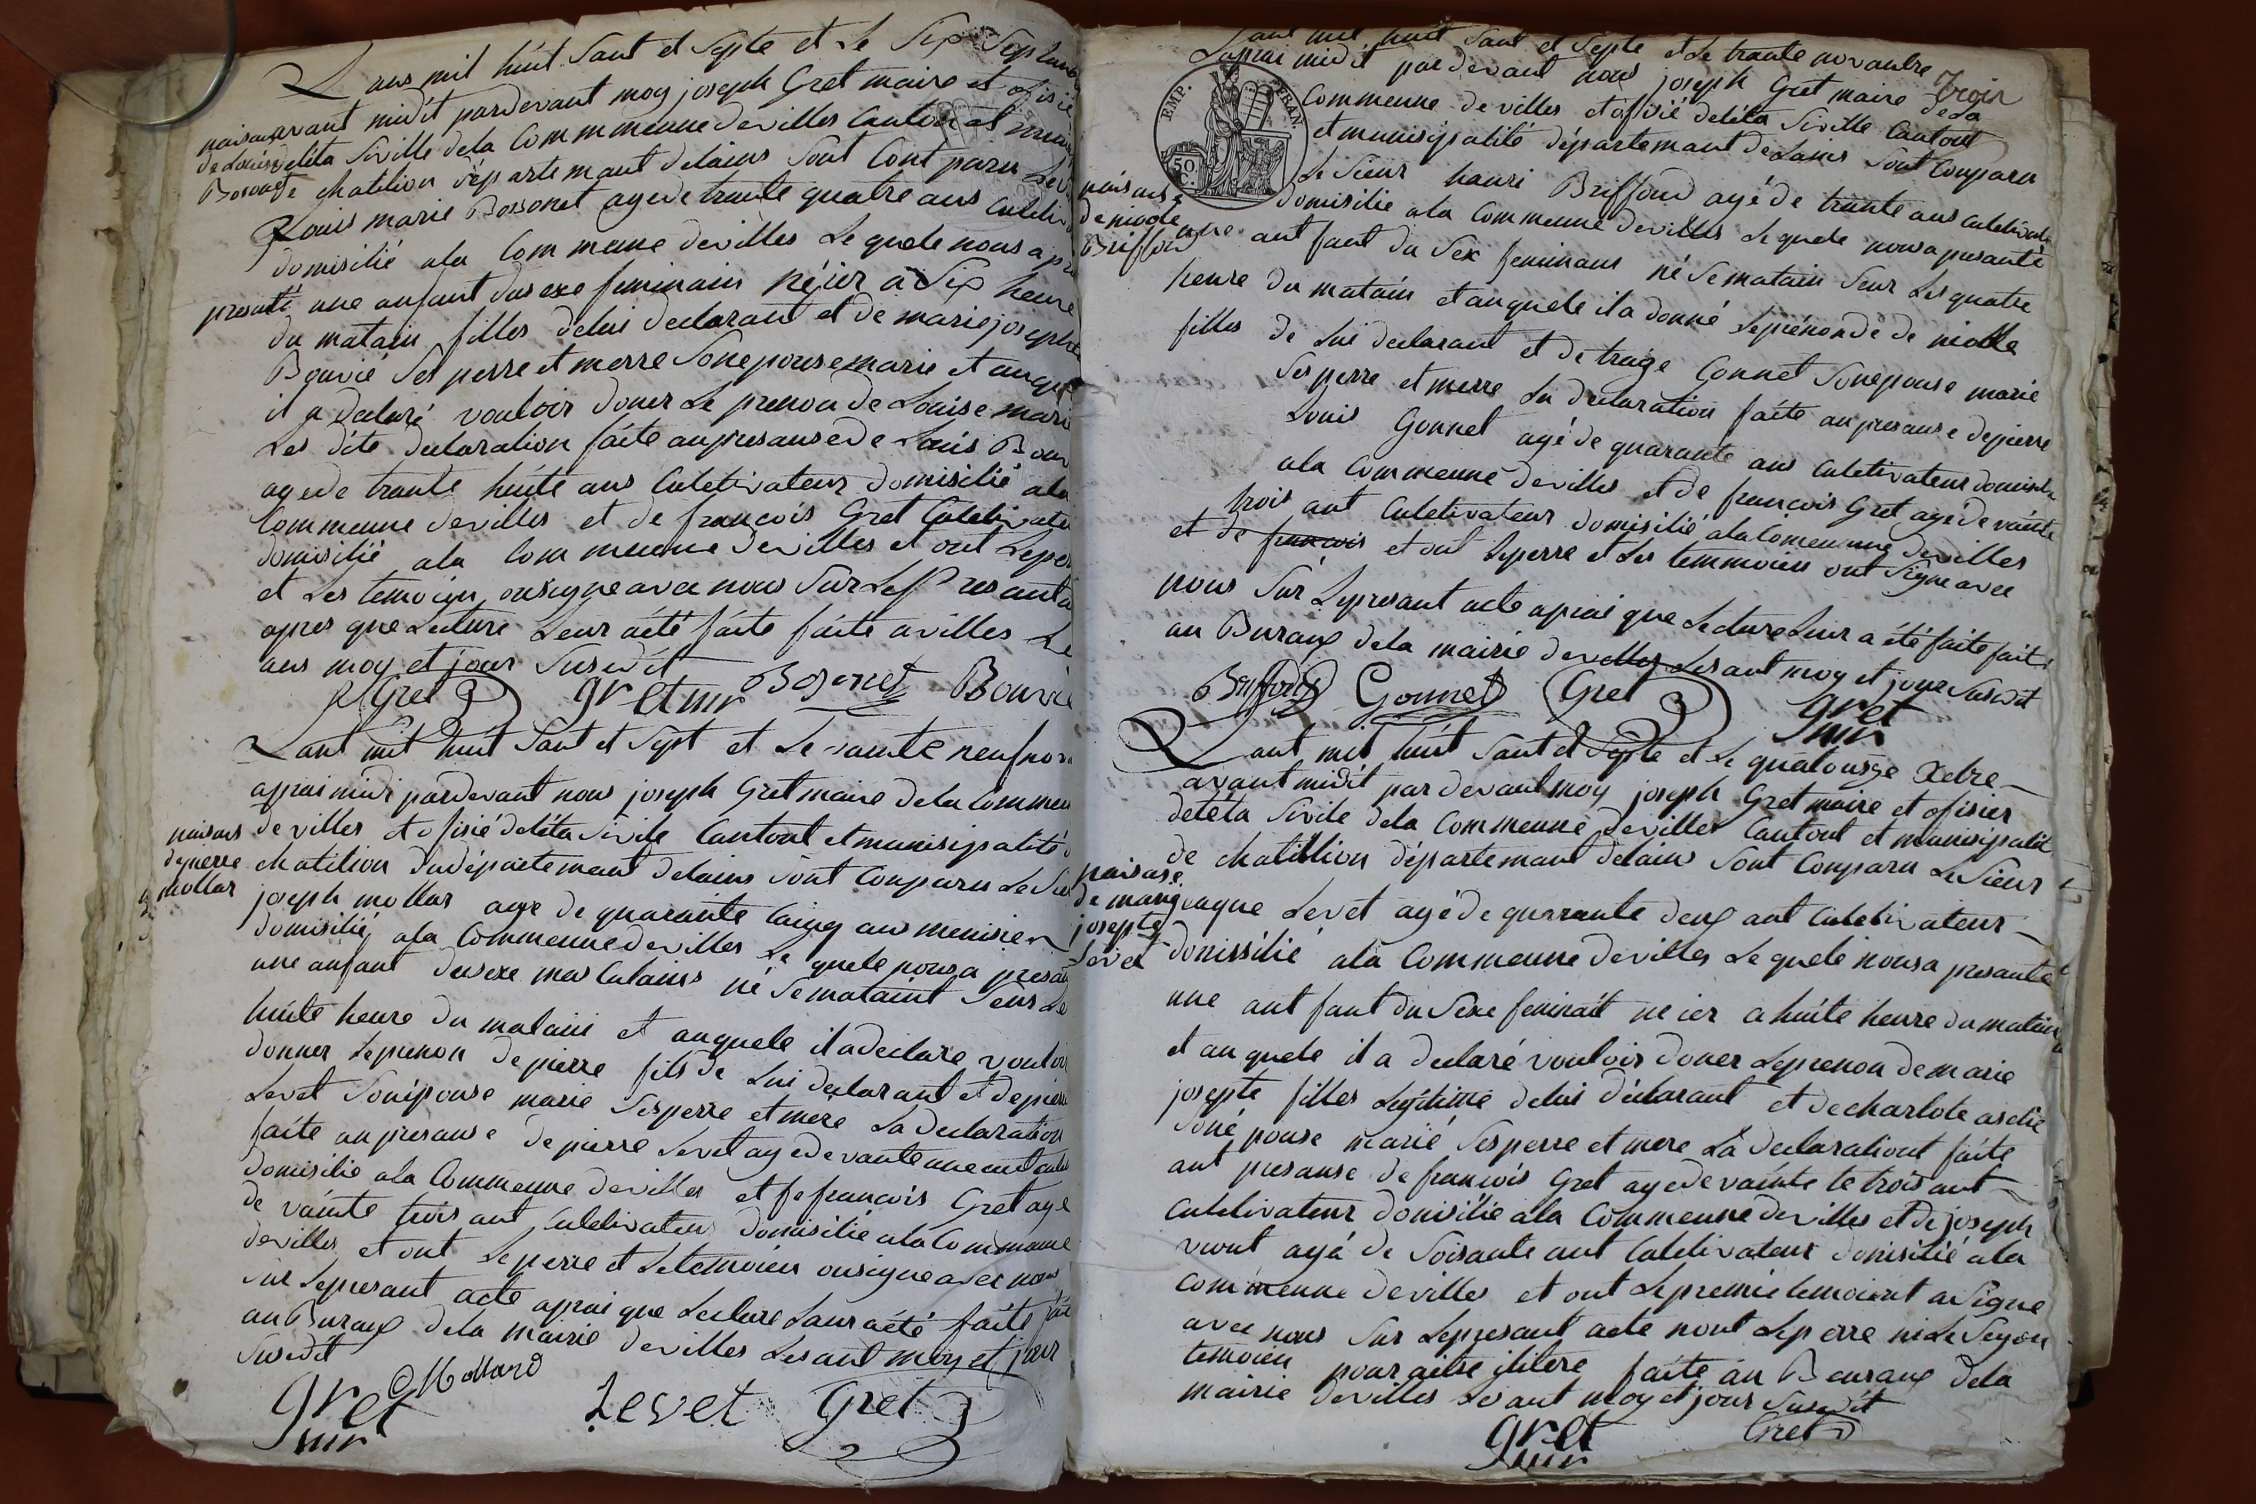 Lans mil huit Sant et Septe et Le Six Septam
naisans avant midit pardevant moy joseph Gret maire et ofisié
de Louise deléta Siville dela Commmeune devilles Canton et muni
Bosonet de chatilion département delains Sont Conparu Le S
Louis marie Bossonet agede trante quatre ans Culetiv
domisilié ala Commeune devilles Lequele nous a pré
presanté une anfant dusexe feminain néjer a Six heure
du matain filles delui declarant et de mariejosephe
Bouvié Ses perre et merre Sonepouse marie et auque
il a declaré vouloir doner Le prenon de Louise marie
Les dite declaration faite anpresansede Louis Bouv
agede trante huite ans Culetivateur domisilié ala
Commeune devilles et de francois Gret Culetivate
domisilié ala Commeune devilles et ont Leper
et Les temoien onsigneavec nous Sur Le Presant a
apres que Lecture Leur aété faite faite avilles Le
ans moy et jour Susdit
Gret gretmr Bosonet Bouvié
Lant mil huit Sant et Sept et Le vainte neuf nov
apraimidi pardevant nous joseph Gret maire dela Commeu
naisans devilles et ofisié deléta Sivile Cantont et munisipalité d
depierre chatilion dudépartement delains Sont Conparu Le Sieu
mollar joseph mollar age de quarante Cainq ans menisier
domisilié ala Commeune devilles Le quele nousa presan
une anfant dusexe mas Culains né Semataint Seur Le
huite heure du matain et auquele iladeclare vouloir
donner Leprenon de pierre fils de Lui declarant et depierr
Levet Sonépouse marie Sesperre et mere La declaration
faite anpresanse de pierre Levet agede vante une ant cule
domisilie ala Commeune devilles et de francois Gret age
de vainte trois ant Culetivateur domisilié ala Commeune
devilles et ont Leperre et Letemoien onsigneavec nous
Sur Lepresant acte aprai que Lecture Leur aété faite fait
au Buraux dela mairie devilles Lesant moy et jour
Susdit
Mollard
gret mr Levet Gret
Lant mil huit Sant et Septe et Le trante novanbre
trois
Laprai midit par devant nous joseph Gret maire dela
EMP. FRAN.
50 C.
Commeune devilles et ofisié deléta Siville Cantont
et munisipalité département delains Sont Conparu
Le Sieur hanri Briffoud agé de trante ans culetivate
naisanse domisilie ala Commeune devilles Le quele nousapresanté
de nicole une ant fant du Sex feminans né Sematain Seur Les quatre
Briffoud
heure du matain et auquele ila donné Leprénon de de nicolle
filles de Lui declarant et de traize Gonnet Sonepouse marie
Ses perre et merre La declaration faite anpresanse depierre
Louis Gonnet agé de quarante ans Culetivateur domisilie
ala Commeune devilles et de francois Gret agé de vainte
trois ant Culetivateur domisilié ala Comeunne devilles
et de francois et ont Leperre et Les temmoien ont Signe avec
nous Sur Lepresant acte aprai que Lecture Leur a été faite faite
au Buraux dela mairie devilles Lesant moy et jour Susdit
Briffoud Gonnet Gret gret mr
Lant mil huit Sant et Septe et Le quatousze Xebre
avant midit pardevant moy joseph Gret maire et ofisier
deléta Sivile dela Commeune devilles Cantont et munisipalit
de chatillion département delains Sont Conparu Le Sieur
naisanse
de marie jaque Levet agé de quarante deux ant Culetivateur
josepte
Levet domissilié ala Commeune devilles Le quele nousa presanté
une ant fant du Sexe feminait ne ier a huite heure du matain
et auquele il a declaré vouloir doner Leprenon demarie
josepte filles Legitime delui déclarant et decharlote asclie
Sonépouse marié Sesperre et mere La declarationt faite
ant presanse de francois Gret agede vainte te trois ant
Culetivateur domisilie ala Commeune devilles et de joseph
viont agé de Soisante ant Culetivateur domisilié ala
commeune devilles et ont Lepremie temoient asigne
avec nous Sur Lepresant acte nont Leperre ni Le Segon
temoien pour aitre ilitere faite au Bcuraux dela
mairie devilles Lesant moy et jour Susdit
gret mr Gret